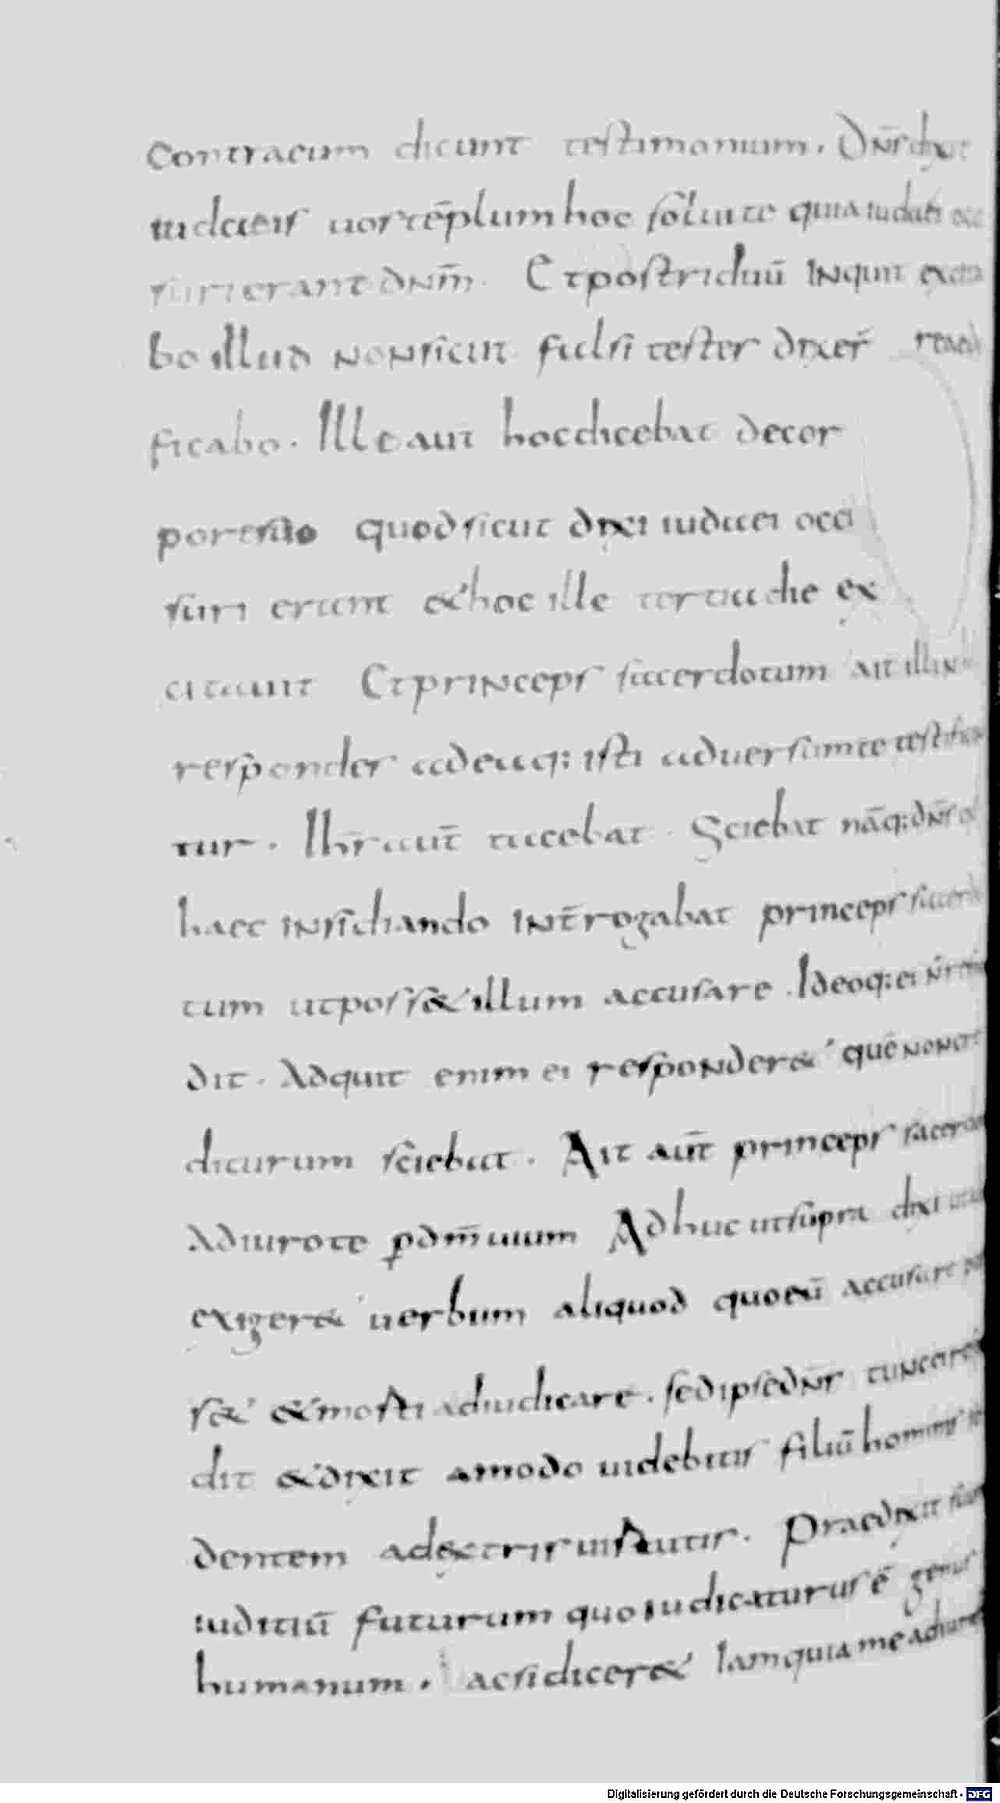 contra eum dicunt testimonium. Dn̄s dixit
iudaeis uos tēplum hoc soluite quia iudaei occi
suri erant dnm̄. Et post triduū inquit excita
bo illud non sicut falsi testes dixer̄ reaedi
ficabo. Ille aut̄ hoc dicebat de cor
pore suo quod sicut dixi iudaei occi
suri erant & hoc ille tertia die ex
citauit Et princeps sacerdotum ait illi
respondes ad eaq; isti aduersum te testifican
tur. Ih̄s aut̄ tacebat. Sciebat nāq; dn̄s
haec insidiando int̄rogabat princeps sacerdo
tum ut poss& illum accusare. Ideoq; ei n̄
dit. Adquit enim ei responder& quē non
dicurum sciebat. Ait aut̄ princeps sacerdo
Adiuro te p dm̄ uium Adhuc ut supra dixi
exiger& uerbum aliquod quo eū accusare pos
s& & morti adiudicare. sed ipse dn̄s tunc
dit & dixit amodo uidebitis filiū hominis se
dentem ad dextris uirtutis. Praedixit suum
iuditiū futurum quo iudicaturus ē genus
humanum. ac si dicer& Iam quia me adiuras